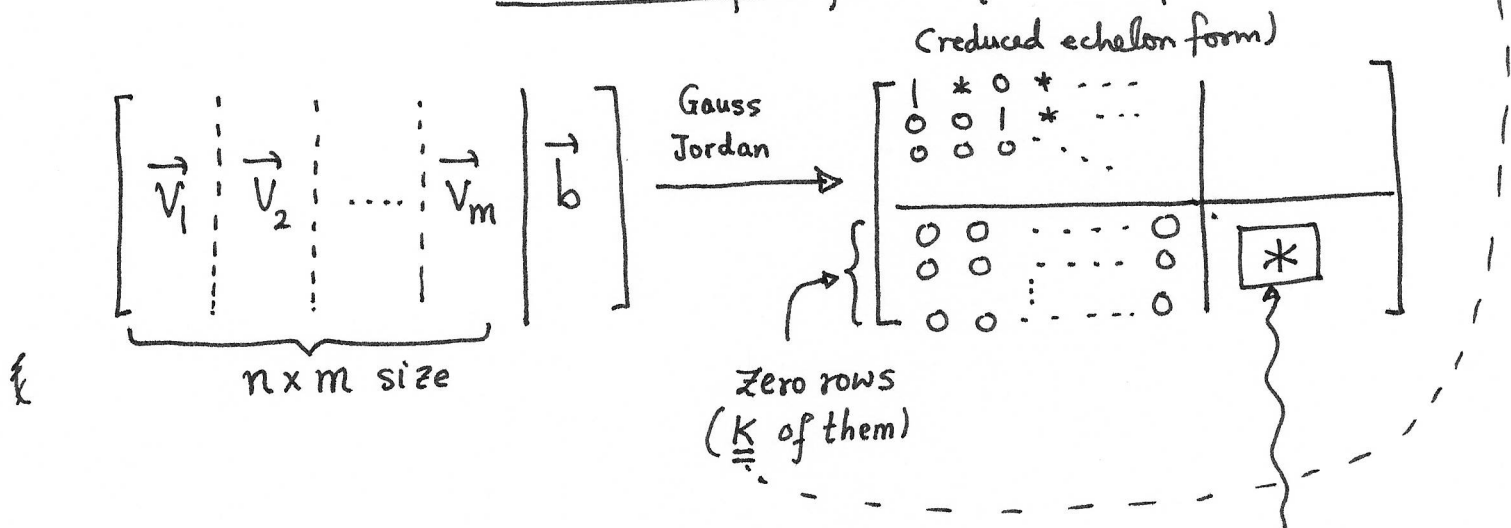 (reduced echelon form)
[ V₁ ¦ V₂ ¦ .... ¦ Vₘ | b ]
n x m size
Gauss
Jordan
1 * 0 * - - - -
0 0 1 * - - -
0 0 0
0 0 - - - - 0
0 0 - - - - 0 *
0 0 - - - - 0
Zero rows
(K of them)